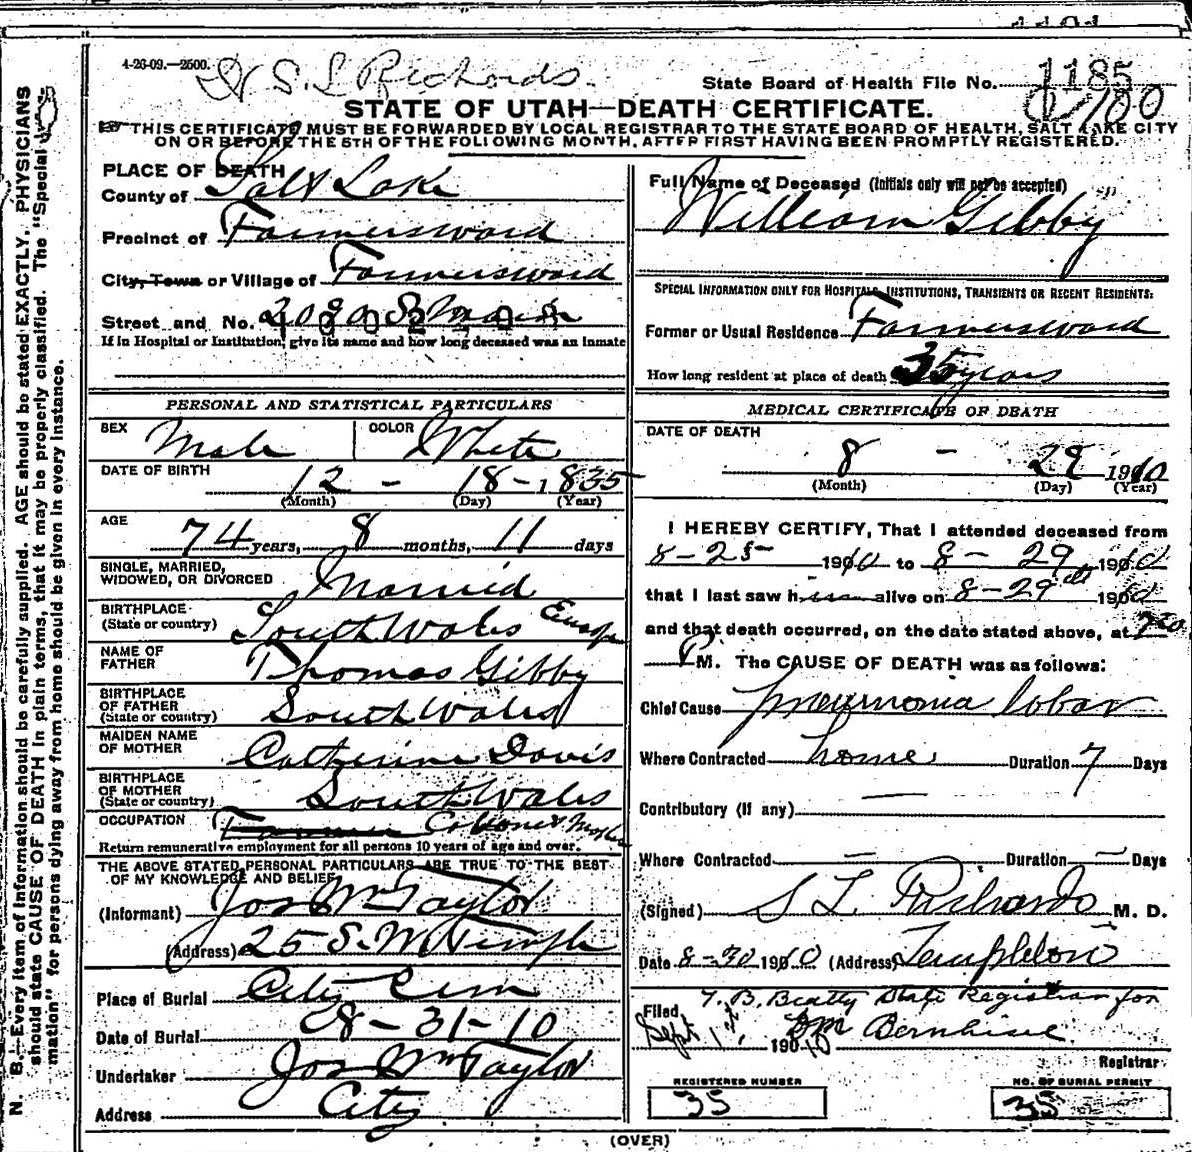 4-26-09.—2500.
S. L. Richards.
State Board of Health File No. 1185
STATE OF UTAH—DEATH CERTIFICATE.
THIS CERTIFICATE MUST BE FORWARDED BY LOCAL REGISTRAR TO THE STATE BOARD OF HEALTH, SALT LAKE CITY
ON OR BEFORE THE 5TH OF THE FOLLOWING MONTH, AFTER FIRST HAVING BEEN PROMPTLY REGISTERED.
N. B.—Every item of information should be carefully supplied. AGE should be stated EXACTLY. PHYSICIANS
should state CAUSE OF DEATH in plain terms, that it may be properly classified. The "Special
mation" for persons dying away from home should be given in every instance.
PLACE OF DEATH
County of Salt Lake
Precinct of Farmersward
City, Town or Village of Farmersward
Street and No.
If in Hospital or Institution, give its name and how long deceased was an inmate
PERSONAL AND STATISTICAL PARTICULARS
SEX Male COLOR White
DATE OF BIRTH 12 - 18 - 1835
(Month) (Day) (Year)
AGE 74 years, 8 months, 11 days
SINGLE, MARRIED,
WIDOWED, OR DIVORCED Married
BIRTHPLACE
(State or country) South Wales Europe
NAME OF
FATHER Thomas Gibby
BIRTHPLACE
OF FATHER
(State or country) South Wales
MAIDEN NAME
OF MOTHER Catherine Davis
BIRTHPLACE
OF MOTHER
(State or country) South Wales
OCCUPATION Farmer
Return remunerative employment for all persons 10 years of age and over.
THE ABOVE STATED PERSONAL PARTICULARS ARE TRUE TO THE BEST
OF MY KNOWLEDGE AND BELIEF
(Informant) Jos Wm Taylor
(Address) 25 S. W. Temple
Place of Burial City Cem
Date of Burial 8-31-10
Undertaker Jos Wm Taylor
Address City
Full Name of Deceased (Initials only will not be accepted)
William Gibby
SPECIAL INFORMATION ONLY FOR HOSPITALS, INSTITUTIONS, TRANSIENTS OR RECENT RESIDENTS:
Former or Usual Residence Farmersward
How long resident at place of death 35 years
MEDICAL CERTIFICATE OF DEATH
DATE OF DEATH
8 - 29 1910
(Month) (Day) (Year)
I HEREBY CERTIFY, That I attended deceased from
8-25 1910 to 8-29 1910
that I last saw him alive on 8-29th 1910
and that death occurred, on the date stated above, at
P M. The CAUSE OF DEATH was as follows:
Chief Cause pneumonia lobar
Where Contracted home Duration 7 Days
Contributory (if any) —
Where Contracted — Duration — Days
(Signed) S L Richards M. D.
Date 8-30 1910 (Address) Templeton
Filed T. B. Beatty State Registrar for
Sept 1st 1910 Bernhisel
Registrar
REGISTERED NUMBER
35
NO. OF BURIAL PERMIT
35
(OVER)